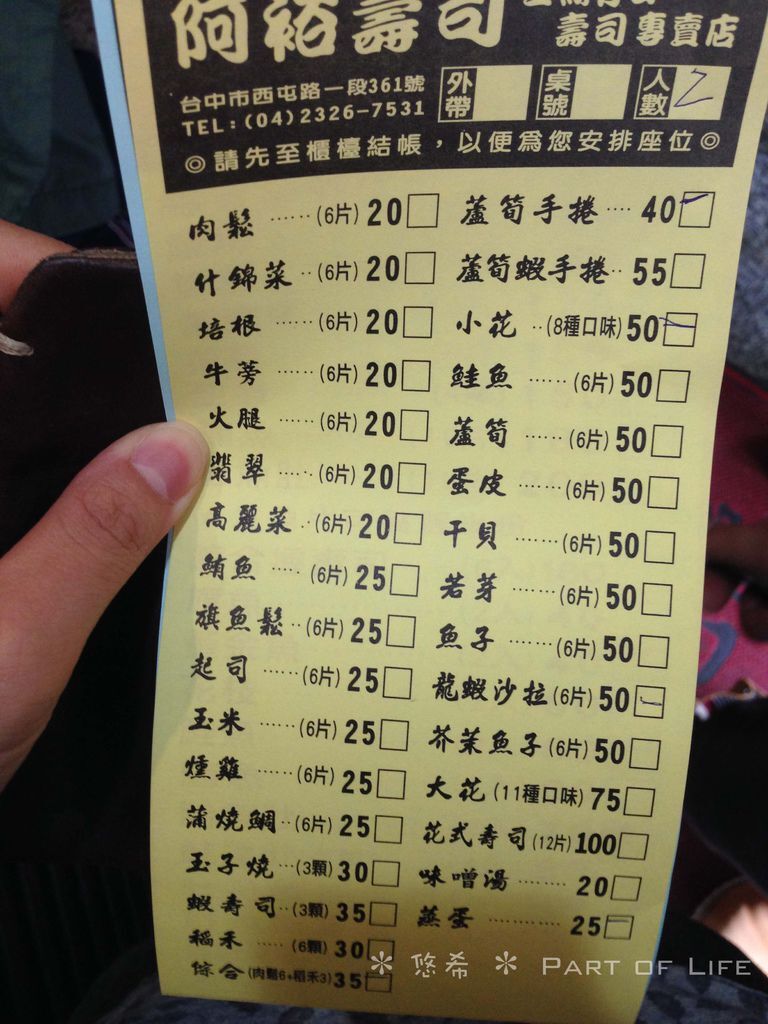 阿裕壽司
壽司專賣店
台中市西屯路一段361號
TEL:(04)2326-7531
外帶 桌號 人數 2
◎請先至櫃檯結帳,以便為您安排座位◎
肉鬆……(6片)20
什錦菜…(6片)20
培根……(6片)20
牛蒡……(6片)20
火腿……(6片)20
翡翠……(6片)20
高麗菜…(6片)20
鮪魚……(6片)25
旗魚鬆…(6片)25
起司……(6片)25
玉米……(6片)25
燻雞……(6片)25
蒲燒鯛…(6片)25
玉子燒…(3顆)30
蝦壽司…(3顆)35
稻禾……(6顆)30
綜合(肉鬆6+稻禾3)35
蘆筍手捲…40
蘆筍蝦手捲…55
小花…(8種口味)50
鮭魚……(6片)50
蘆筍……(6片)50
蛋皮……(6片)50
干貝……(6片)50
若芽……(6片)50
魚子……(6片)50
龍蝦沙拉(6片)50
芥茉魚子(6片)50
大花(11種口味)75
花式壽司(12片)100
味噌湯……20
蒸蛋……25
＊悠希＊ PART OF LIFE